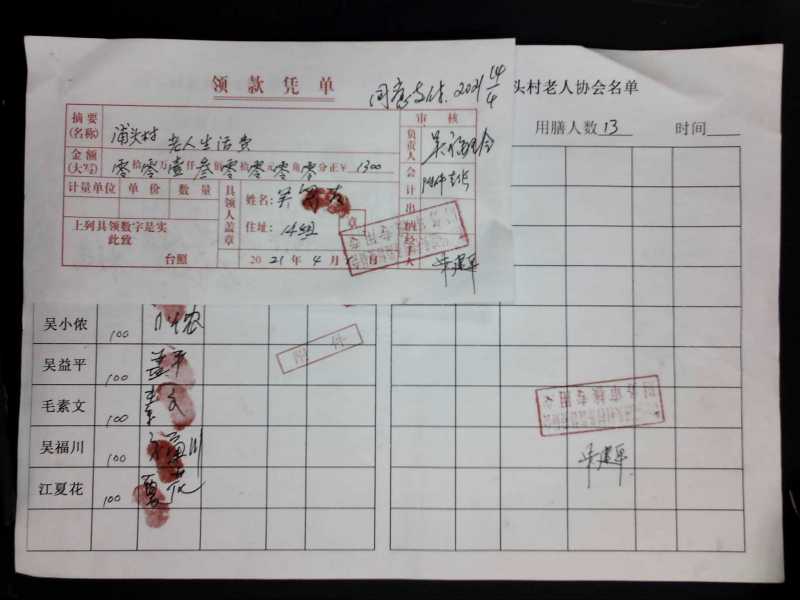 领款凭单
同意支付. 2021 4/4
摘要(名称) 浦头村 老人生活费
审核
金额(大写) 零拾零万壹仟叁佰零拾零元零角零分正¥ 1300
负责人
计量单位 单价 数量
会计
具领人盖章
姓名:吴
住址:14组
出纳
上列具领数字是实
此致
台照
2021年4月 日
经手人
吴建军
头村老人协会名单
用膳人数 13 时间
吴小侬 100 小农
吴益平 100 益平
毛素文 100 素文
吴福川 100 福川
江夏花 100 夏花
附件
吴建军